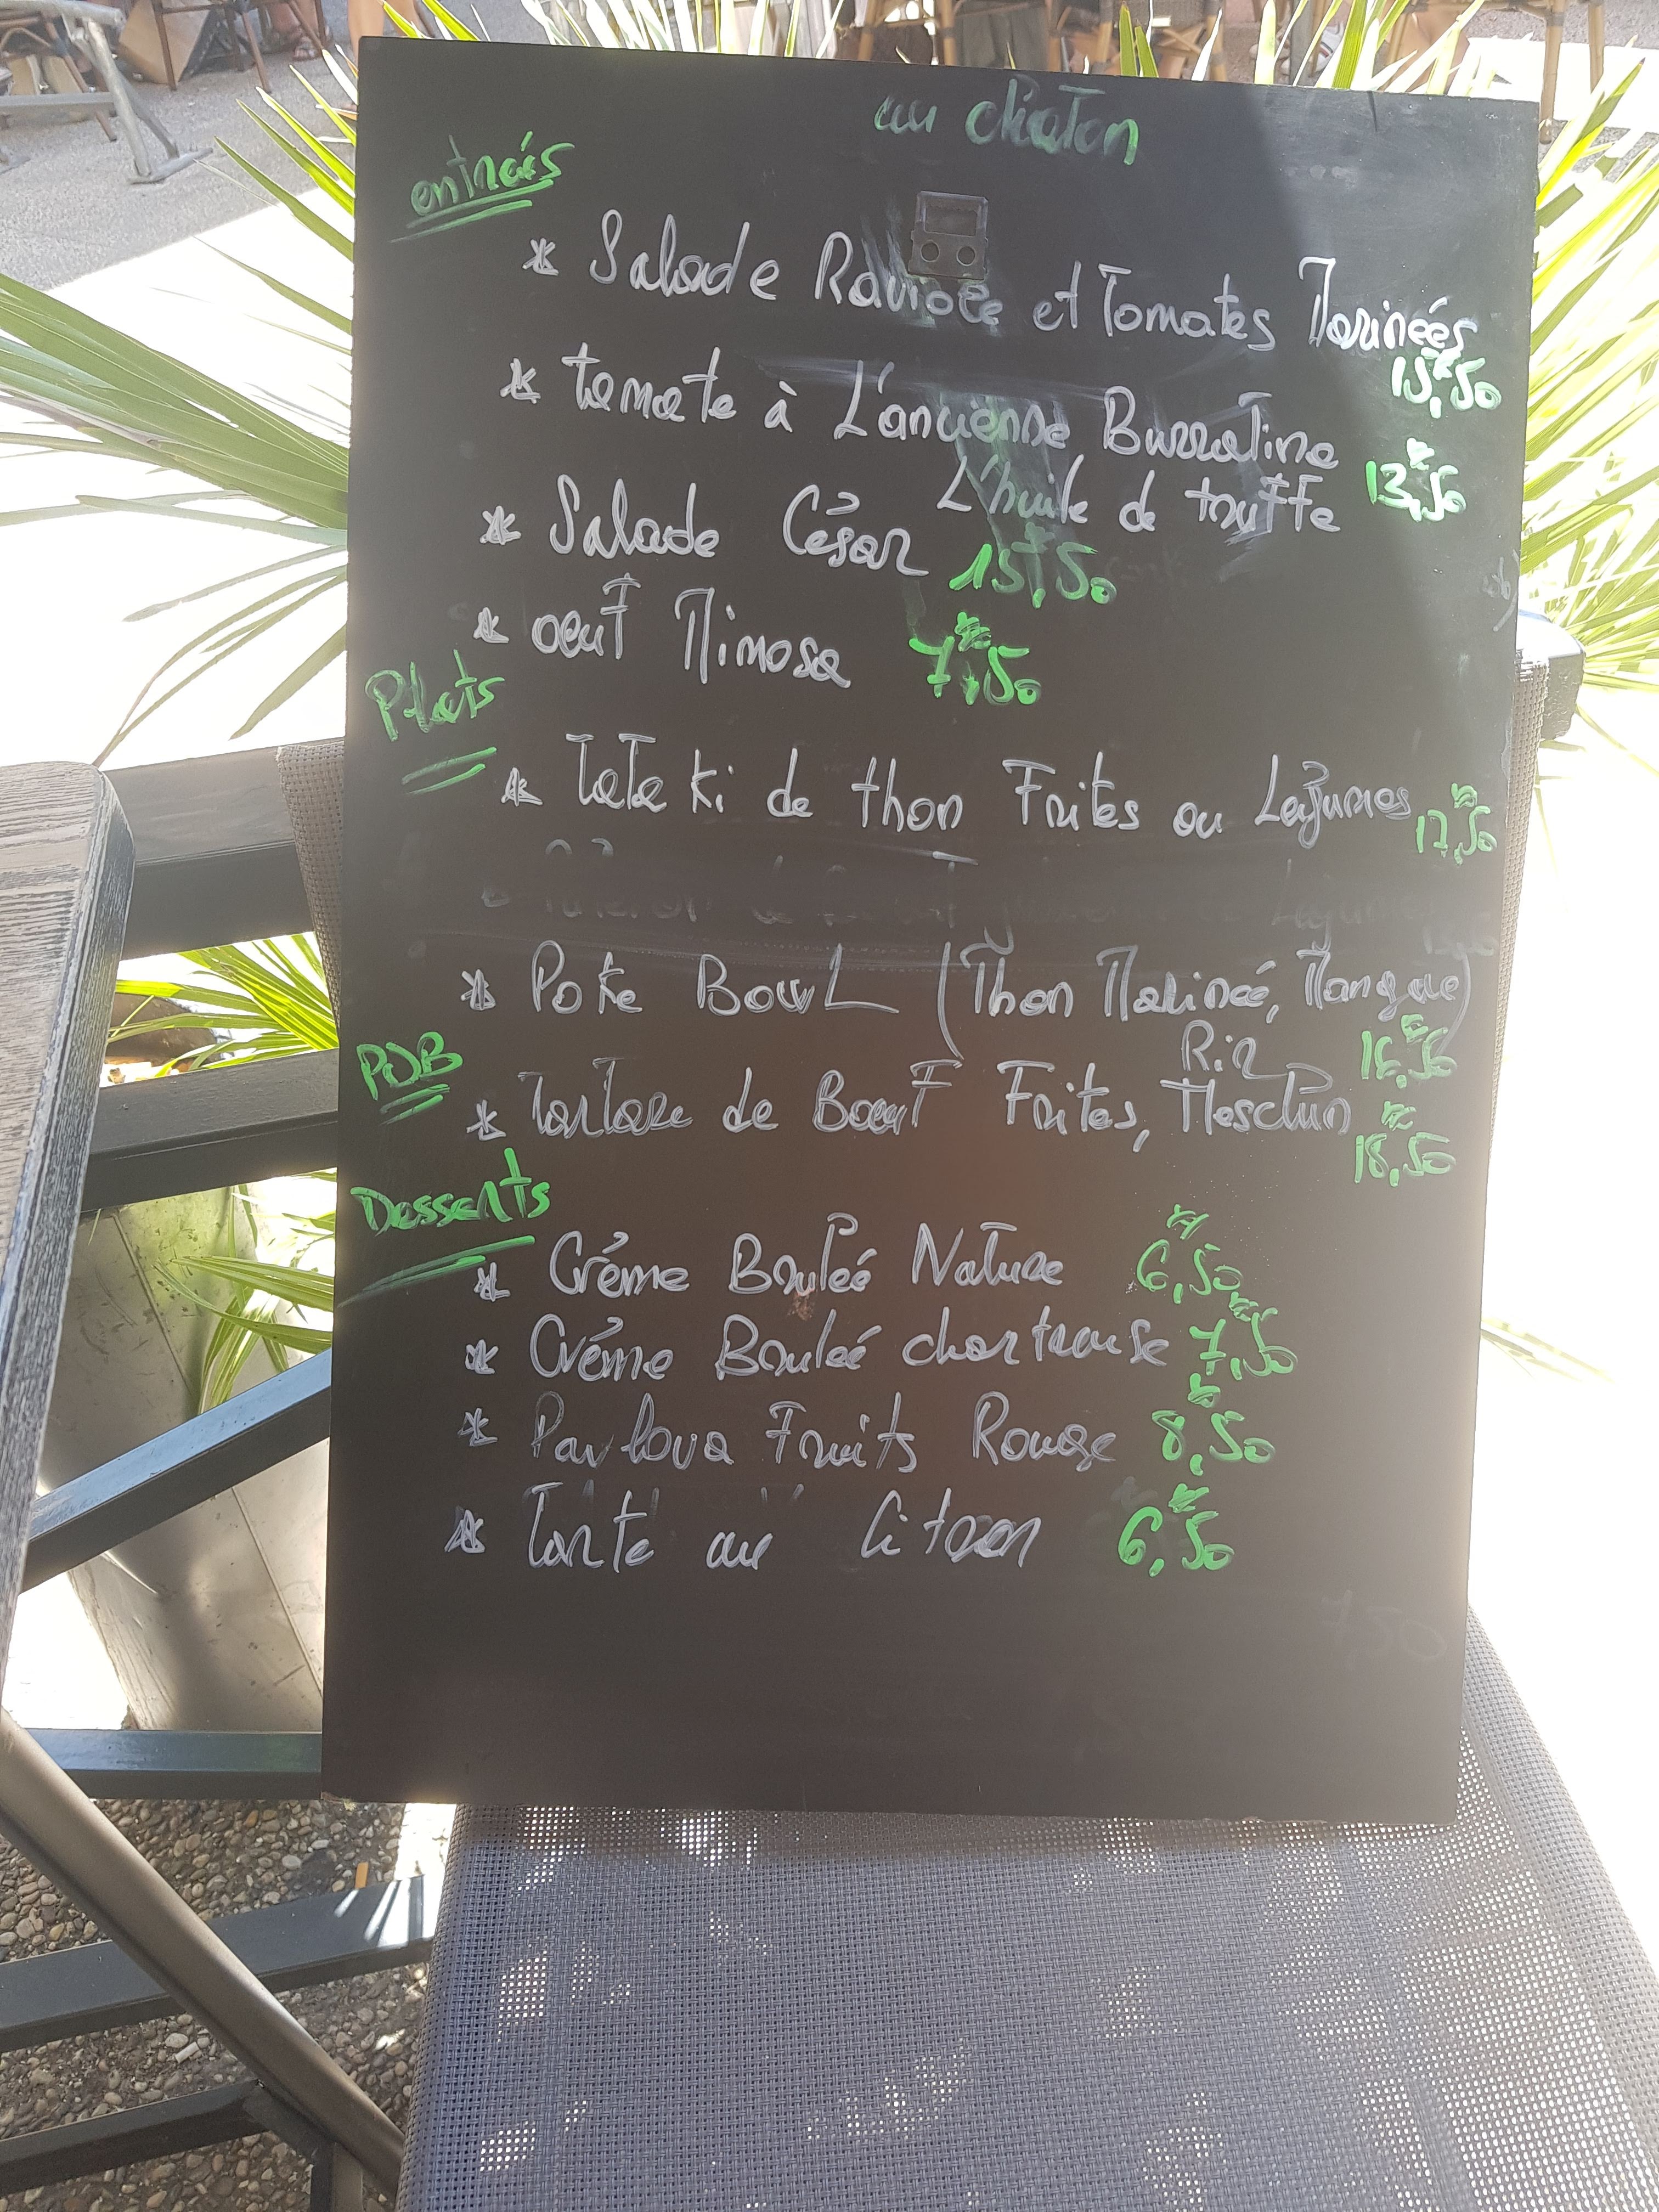 au chaton
entrées
* Salade Raviole et Tomates Marinées
15€,50
* tomate à L'ancienne Burratine
L'huile de truffe 13€,50
* Salade César 15€,50
* oeuf Mimosa 7€,50
Plats
* Tataki de thon Frites ou Légumes 17€,50
* Poke BowL (Thon Mariné, Mangue)
Riz 16€,50
PDB
* Tartare de Boeuf Frites, Mesclun
18€,50
Desserts
* Créme Brulée Nature 6€,50
* Créme Brulée chartreuse 7€,50
* Pavlova Fruits Rouge 8€,50
* Tarte au Citron 6€,50
7,50